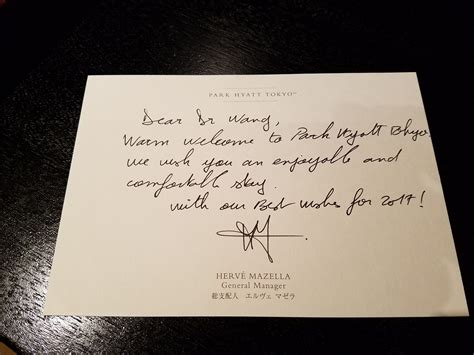 PARK HYATT TOKYO™
Dear Dr Wang,
Warm welcome to Park Hyatt Tokyo
we wish you an enjoyable and
comfortable stay.
with our Best wishes for 2017!
HERVÉ MAZELLA
General Manager
総支配人 エルヴェ マゼラ